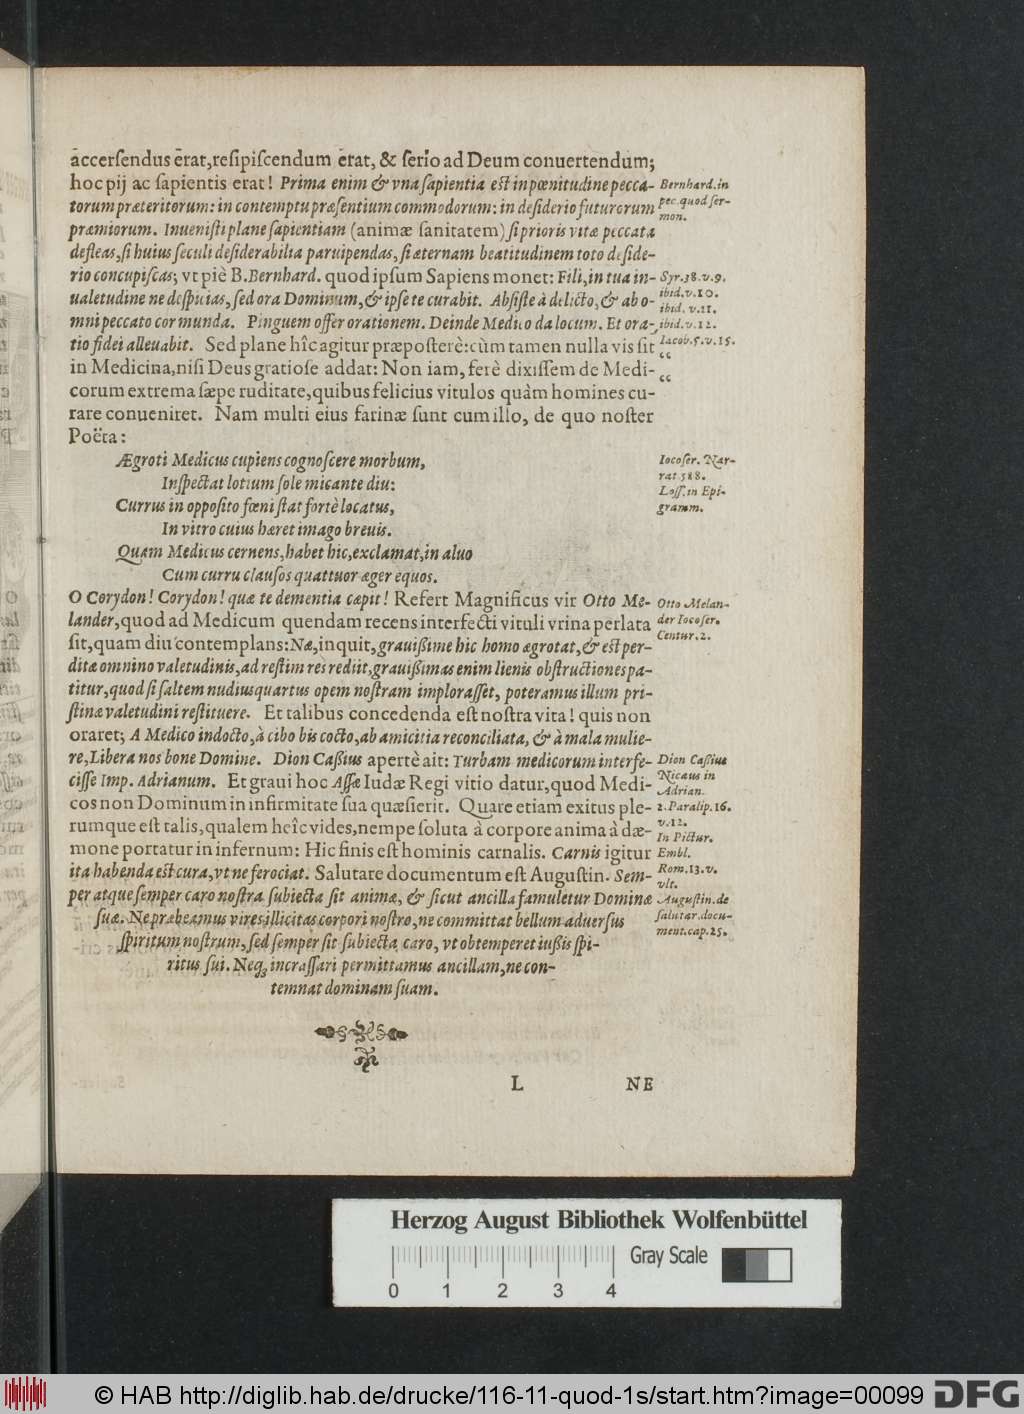 accersendus erat, resipiscendum erat, & serio ad Deum conuertendum;
hoc pij ac sapientis erat! Prima enim & vna sapientia est in pœnitudine pecca-
torum præteritorum: in contemptu præsentium commodorum: in desiderio futurorum
præmiorum. Inuenisti plane sapientiam (animæ sanitatem) si prioris vitæ peccata
defleas, si huius seculi desiderabilia paruipendas, si æternam beatitudinem toto deside-
rio concupiscas; vt piè B. Bernhard. quod ipsum Sapiens monet: Fili, in tua in-
ualetudine ne despicias, sed ora Dominum, & ipse te curabit. Absiste à delicto, & ab o-
mni peccato cor munda. Pinguem offer orationem. Deinde Medico da locum. Et ora-
tio fidei alleuabit. Sed plane hîc agitur præposterè: cùm tamen nulla vis sit
in Medicina, nisi Deus gratiose addat: Non iam, ferè dixissem de Medi-
corum extrema sæpe ruditate, quibus felicius vitulos quàm homines cu-
rare conueniret. Nam multi eius farinæ sunt cum illo, de quo noster
Poëta:
Ægroti Medicus cupiens cognoscere morbum,
Inspectat lotium sole micante diu:
Currus in opposito fœni stat fortè locatus,
In vitro cuius hæret imago breuis.
Quam Medicus cernens, habet hic, exclamat, in aluo
Cum curru clausos quattuor æger equos.
O Corydon! Corydon! quæ te dementia cæpit! Refert Magnificus vir Otto Me-
lander, quod ad Medicum quendam recens interfecti vituli vrina perlata
sit, quam diu contemplans: Næ, inquit, grauißime hic homo ægrotat, & est per-
ditæ omnino valetudinis, ad restim res rediit, grauißimas enim lienis obstructiones pa-
titur, quod si saltem nudiusquartus opem nostram implorasset, poteramus illum pri-
stinæ valetudini restituere. Et talibus concedenda est nostra vita! quis non
oraret; A Medico indocto, à cibo bis cocto, ab amicitia reconciliata, & à mala mulie-
re, Libera nos bone Domine. Dion Caßius apertè ait: Turbam medicorum interfe-
cisse Imp. Adrianum. Et graui hoc Assæ Iudæ Regi vitio datur, quod Medi-
cos non Dominum in infirmitate sua quæsierit. Quare etiam exitus ple-
rumque est talis, qualem heîc vides, nempe soluta à corpore anima à dæ-
mone portatur in infernum: Hic finis est hominis carnalis. Carnis igitur
ita habenda est cura, vt ne ferociat. Salutare documentum est Augustin. Sem-
per atque semper caro nostra subiecta sit animæ, & sicut ancilla famuletur Dominæ
suæ. Ne præbeamus vires illicitas corpori nostro, ne committat bellum aduersus
spiritum nostrum, sed semper sit subiecta caro, vt obtemperet iußis spi-
ritus sui. Neq; incrassari permittamus ancillam, ne con-
temnat dominam suam.
L NE
Bernhard. in
pec. quod ser-
mon.
Syr. 38. v. 9.
ibid. v. 10.
ibid. v. 11.
ibid. v. 12.
Iacob. 5. v. 15.
“
“
Iocoser. Nar-
rat 588.
Loss. in Epi-
gramm.
Otto Melan-
der Iocoser.
Centur. 2.
Dion Caßius
Nicæus in
Adrian.
2. Paralip. 16.
v. 12.
In Pictur.
Embl.
Rom. 13. v.
vlt.
Augustin. de
salutar. docu-
ment. cap. 25.
Herzog August Bibliothek Wolfenbüttel
Gray Scale
0 1 2 3 4
© HAB http://diglib.hab.de/drucke/116-11-quod-1s/start.htm?image=00099
DFG